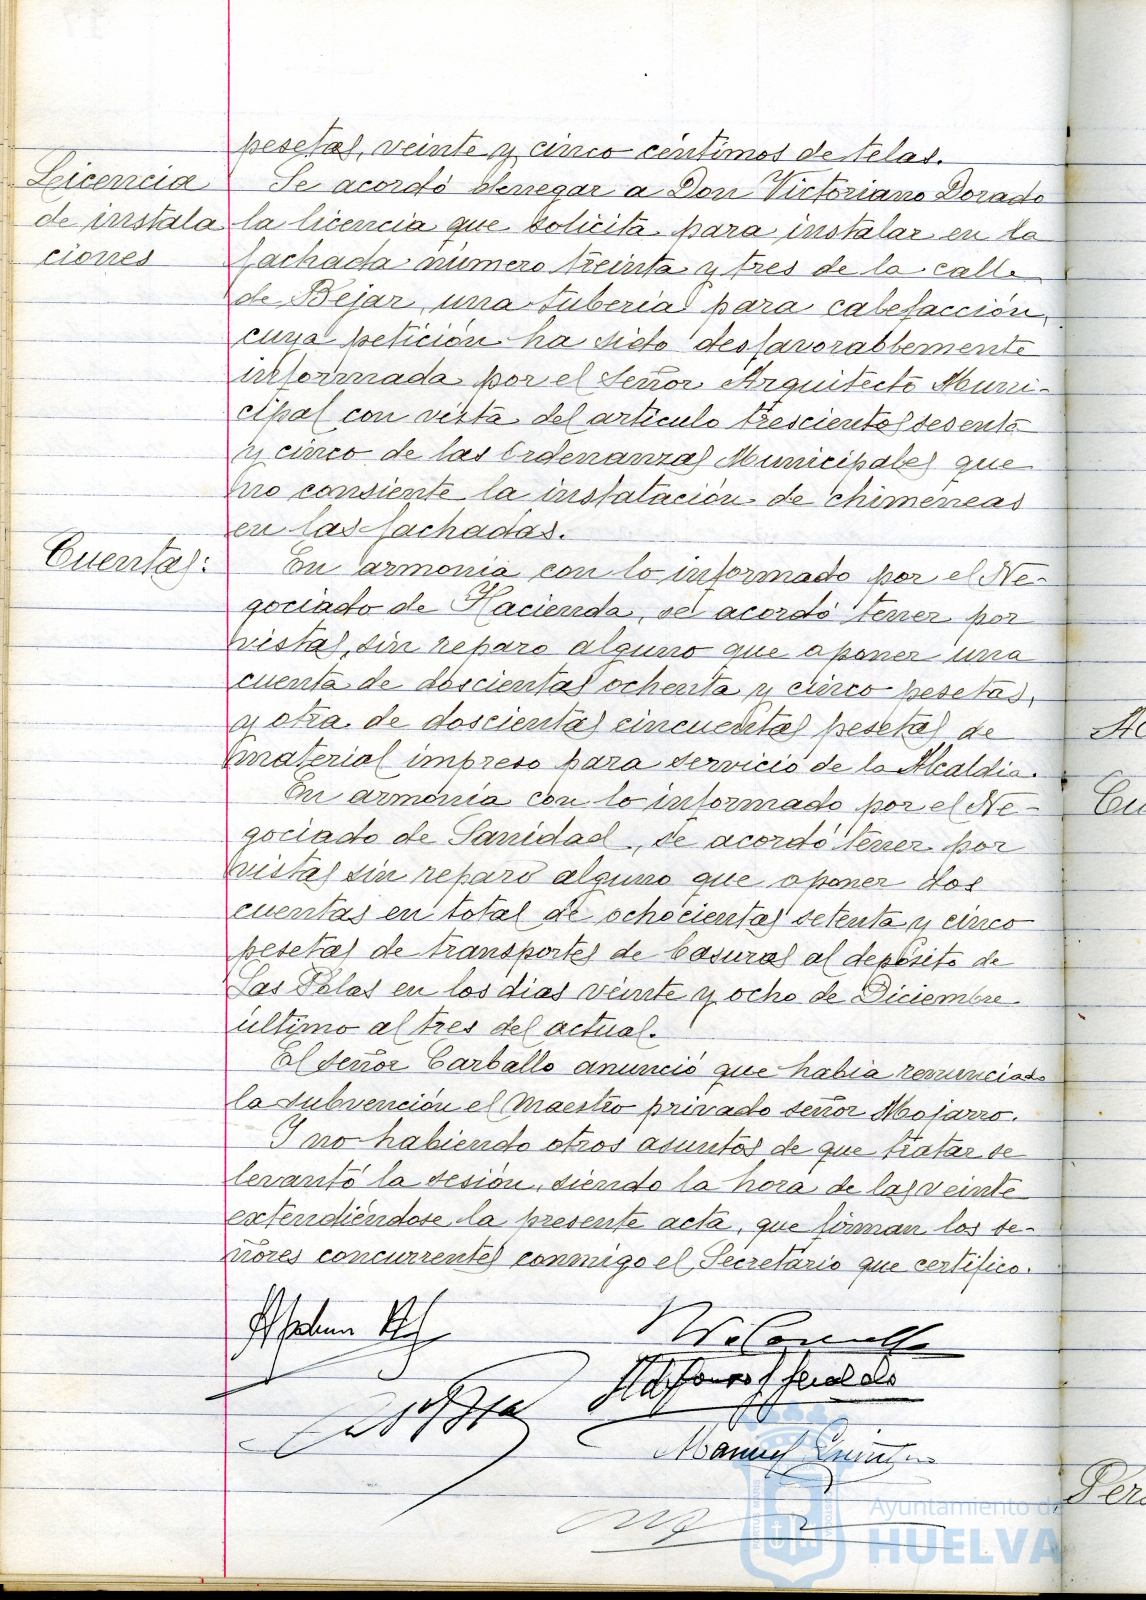 pesetas, veinte y cinco céntimos de telas.
Licencia
de instala
ciones
Se acordó denegar a Don Victoriano Dorado
la licencia que solicita para instalar en la
fachada número treinta y tres de la calle
de Bejar, una tubería para calefacción,
cuya petición ha sido desfavorablemente
informada por el Señor Arquitecto Muni-
cipal con vista del artículo trescientos sesenta
y cinco de las Ordenanzas Municipales que
no consiente la instalación de chimeneas
en las fachadas.
Cuentas:
En armonía con lo informado por el Ne-
gociado de Hacienda, se acordó tener por
vistas, sin reparo alguno que oponer una
cuenta de doscientas ochenta y cinco pesetas,
y otra de doscientas cincuentas pesetas de
material impreso para servicio de la Alcaldia.
En armonía con lo informado por el Ne-
gociado de Sanidad, se acordó tener por
vistas sin reparo alguno que oponer dos
cuentas en total de ochocientas setenta y cinco
pesetas de transportes de basuras al depósito de
Las Palas en los dias veinte y ocho de Diciembre
último al tres del actual.
El señor Carballo anunció que habia renunciado
la subvención el Maestro privado señor Mojarro.
Y no habiendo otros asuntos de que tratar se
levantó la sesión, siendo la hora de las veinte
extendiéndose la presente acta, que firman los se-
ñores concurrentes conmigo el Secretario que certifico.
Manuel
Ac
Cu
Pers
Ayuntamiento de
HUELVA